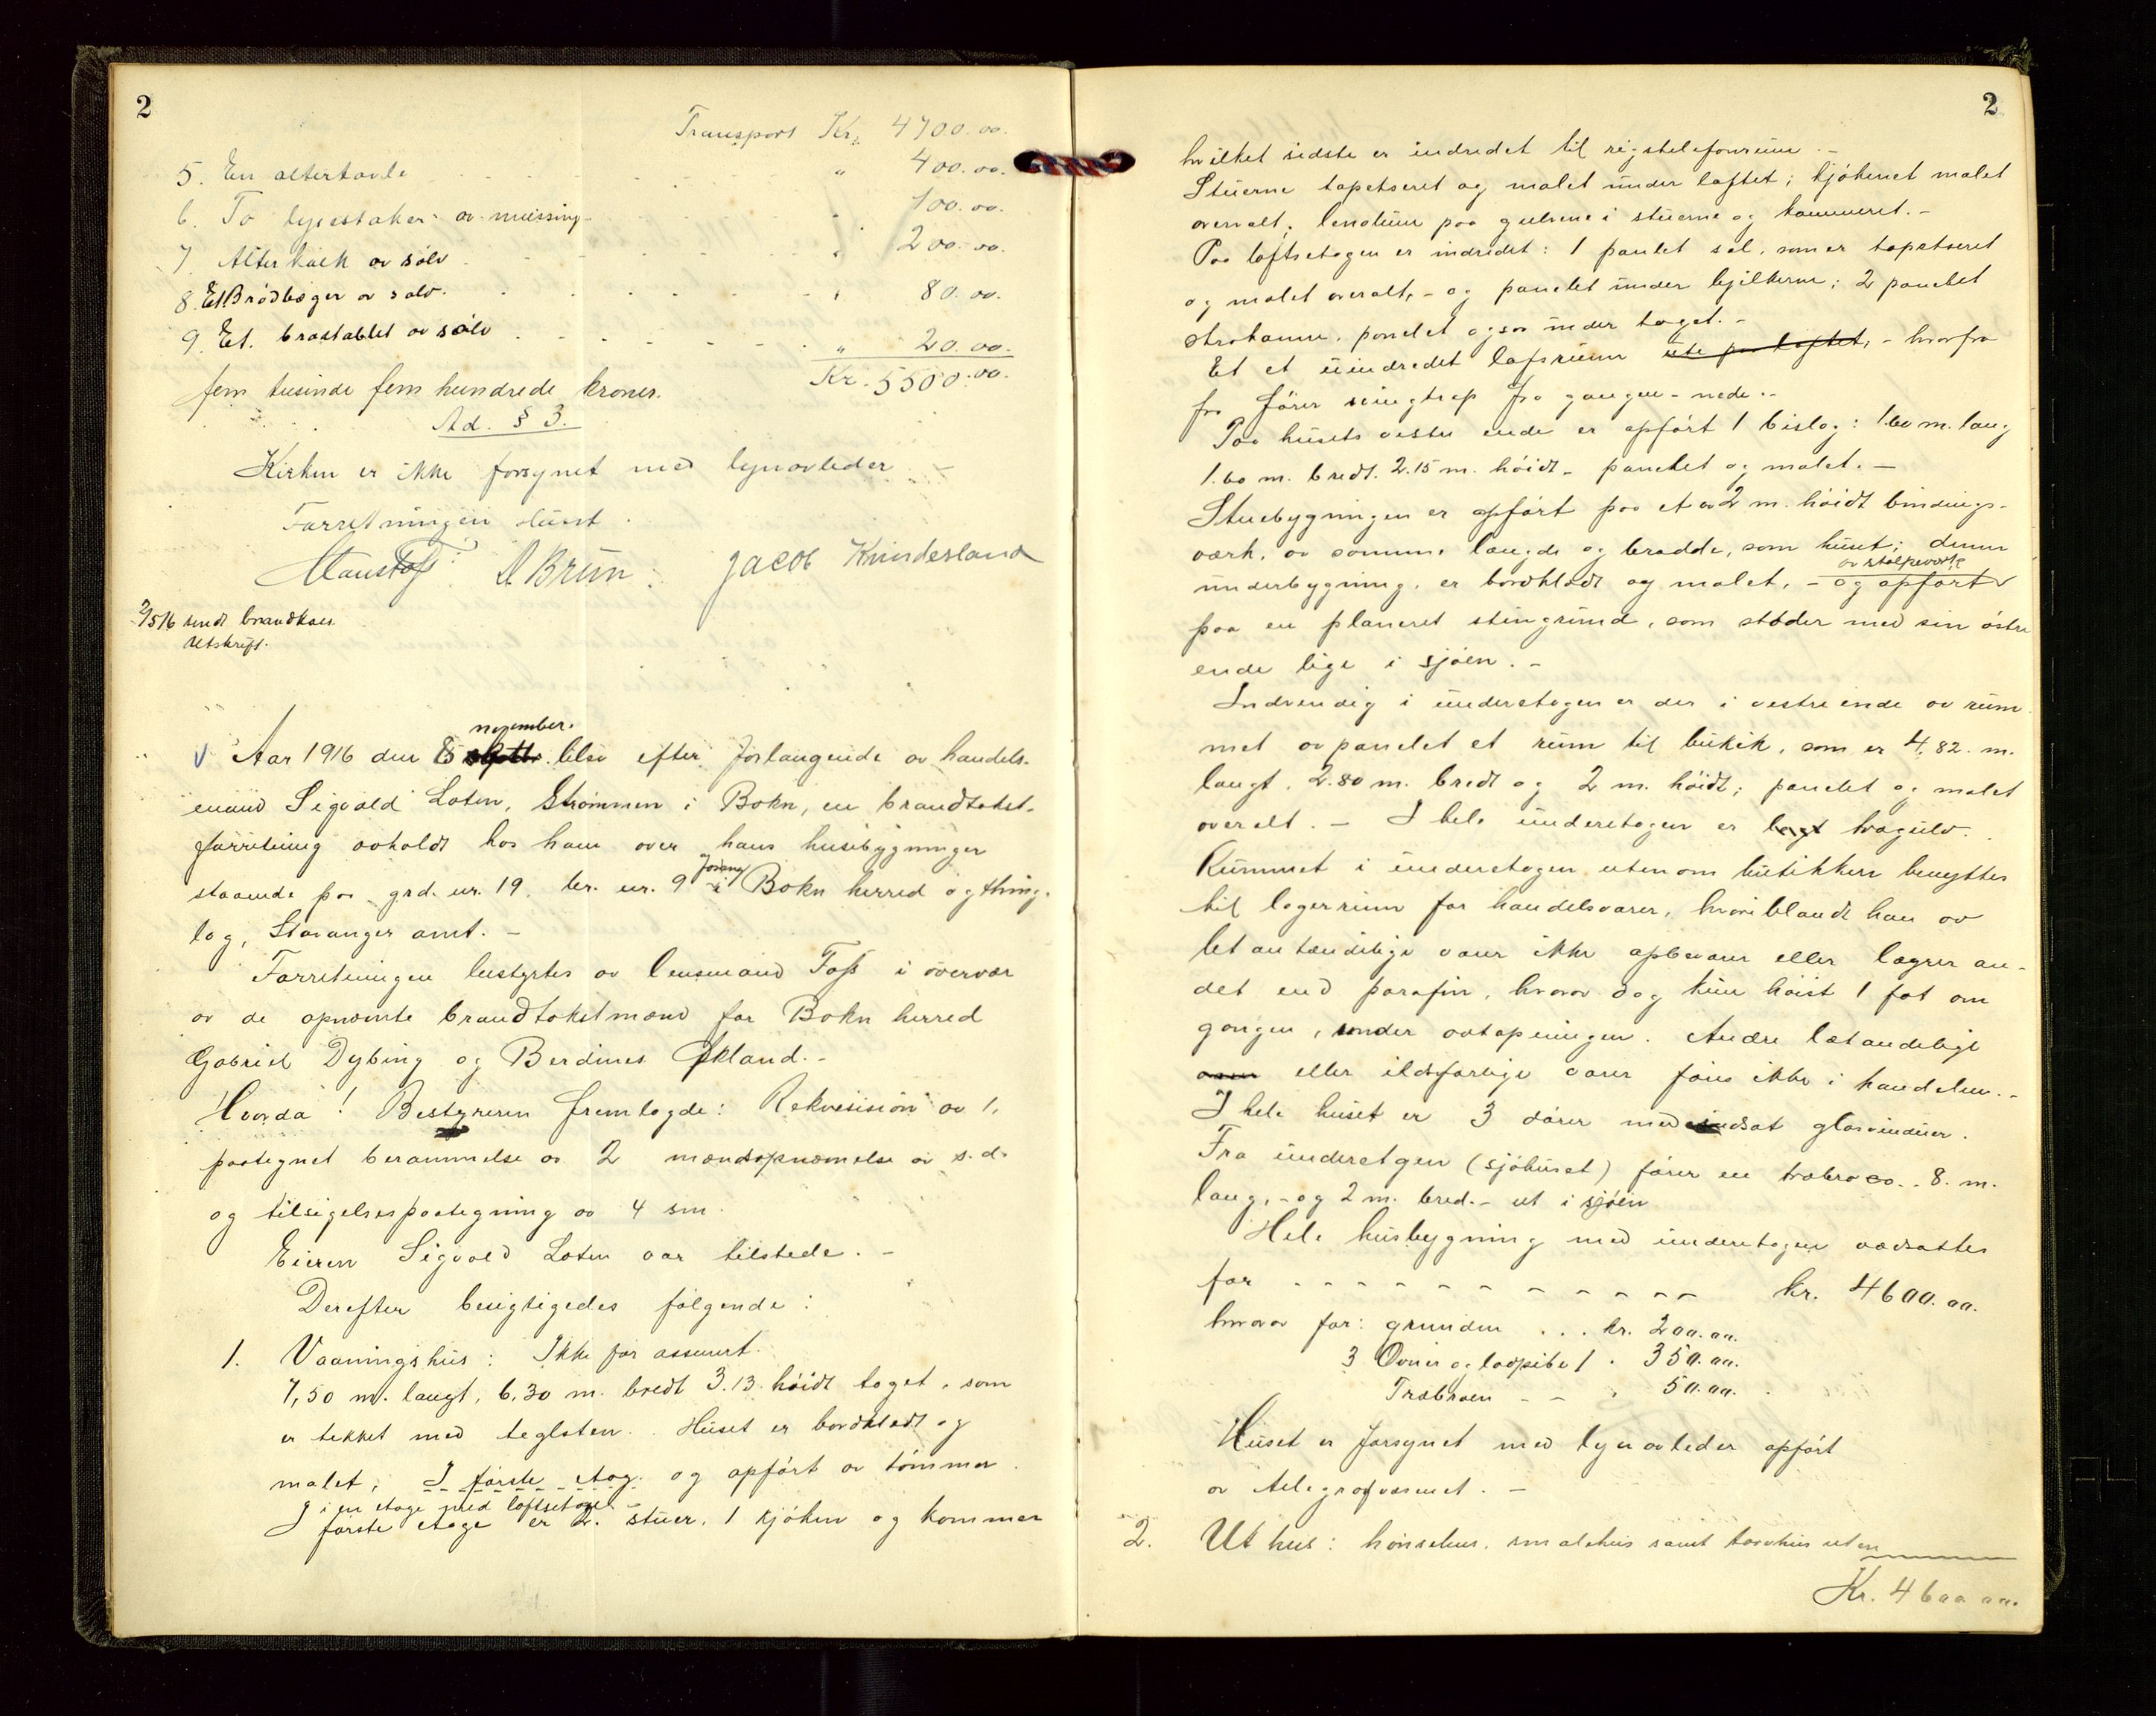 2
Transport Kr. 4700.00.
5. En altertavle " 400.00.
6. To lysestaker av messing " 100.00.
7. Alterkalk av sölv " 200.00.
8. Et Brödbæger av sölv. " 80.00.
9. Et. brøstablet av sölv " 20.00.
fem tusinde fem hundrede kroner. Kr. 5500.00.
Ad. § 3.
Kirken er ikke forsynet med lynavleder –
Forretningen slut.
A Brün. Jacob Kvinnesland
2/5 16 sendt brandkass.
utskrift.
november.
Aar 1916 den 8 blev efter forlangende av handels-
mand Sigvald Loten, Strømmen i Bokn, en brandtakst-
forretning avholdt hos ham over hans husebygninger
staaende paa grd. nr. 19. br. nr. 9 i Bokn herred og thing-
lag, Stavanger amt. –
Forretningen bestyrtes av lensmand Foss i overvær
av de opnævnte brandtakstmænd for Bokn herred
Gabriel Dybing og Berdines Økland. –
Hvorda! Bestyreren fremlagde: Rekvisision av 1,
paategnet berammelse av 2 mændsopnævnelse av s.d.
og tilsigelsespaategning av 4 sm.
Eieren Sigvald Loten var tilstede. –
Derefter besigtigedes følgende:
1. Vaaningshus: Ikke før assurert.
7,50 m. langt, 6,30 m. bredt 3.13. höidt taget, som
er tekket med teglsten. Huset er bordklædt og
malet; I første etag. og opført av tömmer.
i en etage med loftsetage. –
I første etage er 2. stuer, 1 kjöken og kammer
2
hvilket sidste er indredet til rigstelefonrum. –
Stuerne tapetseret og malet under loftet; kjökenet malet
overalt; linolium paa gulvene i stuerne og kammeret. –
Paa loftsetagen er indredet: 1 panelet sal, som er tapetseret
og malet overalt, – og panelet under bjelkerne; 2 panelet
panelet ogsaa under taget. –
Et et uindredet lofsrum ute paa loftet, – hvorfra
fra förer svingtrap fra gangen – nede. –
Paa husets vestre ende er opfört 1 bislag: 1.60 m. lang
1.60 m. bredt. 2.15 m. höidt – panelet og malet. –
Stuebygningen er opfört paa et av 2 m. höidt bindings-
værk, av samme længde og bredde, som huset; denne
av stolpeverk
underbygning, er bordklædt og malet, – og opfört
paa en planeret stengrund, som stöder med sin östre
ende lige i sjöen. –
Indvendig i underetagen er der i vestre ende av rum
met av panelet et rum til butik, som er 4,82. m.
langt, 2.80 m. bredt og 2 m. höidt; panelet og malet
overalt. – I hele underetagen er lagt trægulv.
Rummet i underetagen utenom butikken benyttes
til lagerrum for handelsvarer, hvoriblandt han av
letantændelige varer ikke opbevarer eller lagrer an-
det end parafin, hvorav dog kun höist 1 fat om
gangen, under avtapningen. Andre letandelige
eller ildsfarlige varer føres ikke i handelen. –
I hele huset er 3 dörer med indsat glasvinduer.
Fra underetgen (sjöhuset) förer en træbro ca. 8. m.
lang, – og 2 m. bred. – ut i sjöen
Hele husbygning med underetagen værdsattes
for - - - - - - - - - kr. 4600.00.
hvorav for: grunden . . . kr. 200.00.
3 Ovner og 1 . 350.00.
Træbroen - - . 50.00.
Huset er forsynet med lynavleder opfört
av telegrafvæsenet. –
2. Uthus: hönsehus, smalehus samt torvhus uten
Kr. 4600.00.